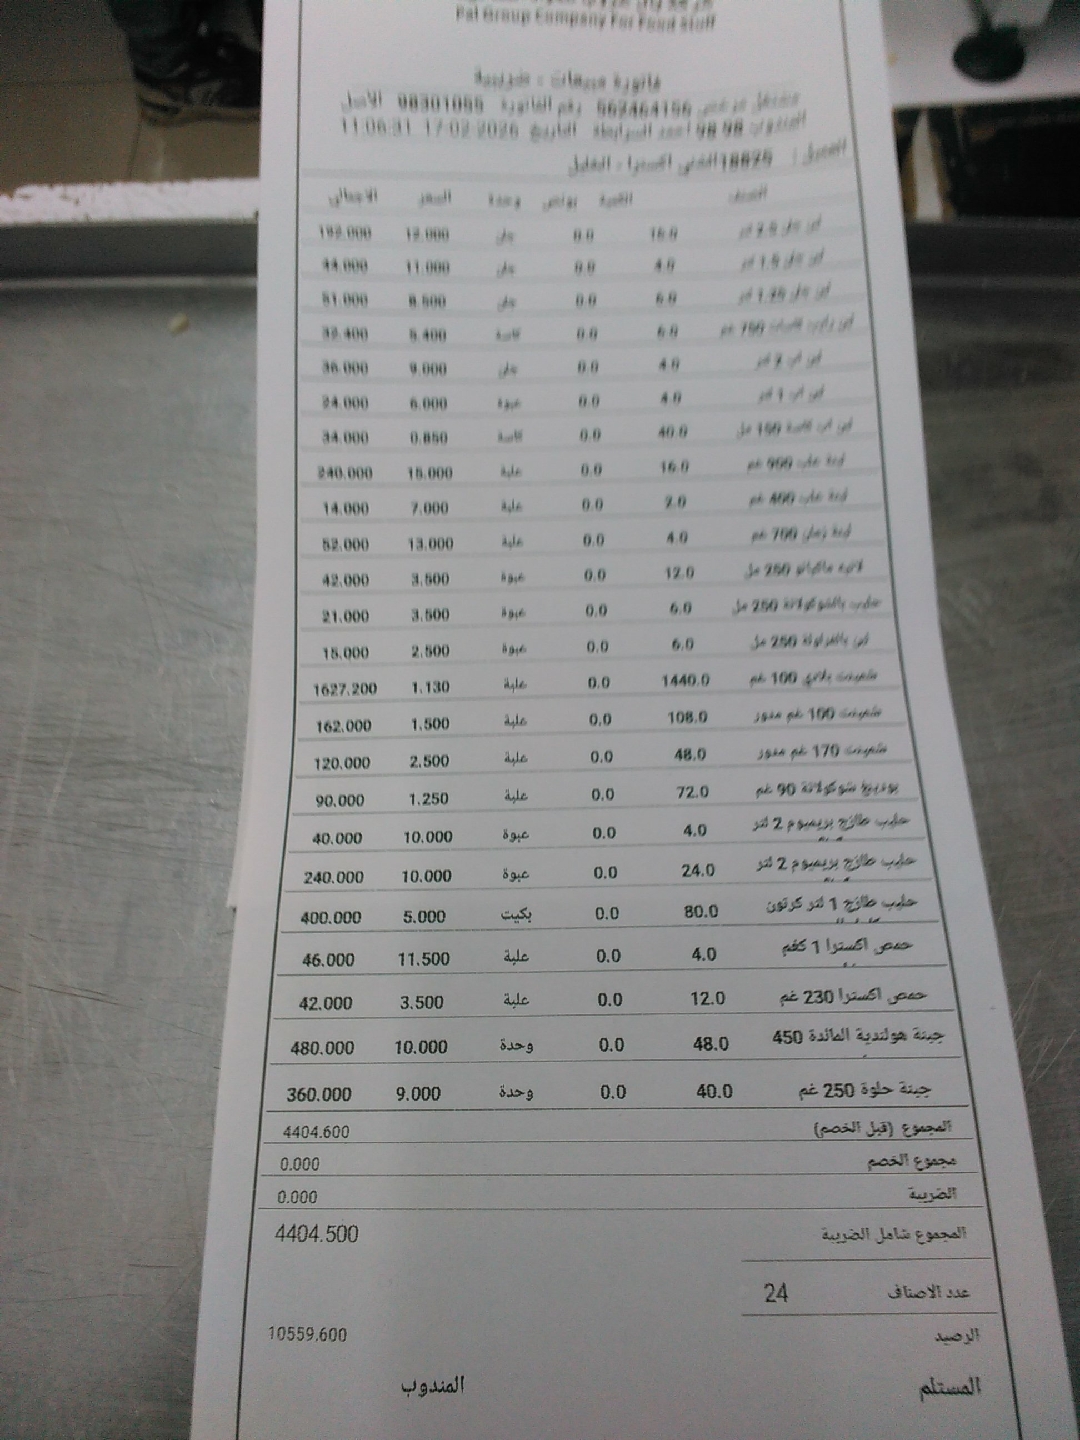 Pal Group Company For Food Stuff
فاتورة مبيعات - ضريبية
مشتغل مرخص 562464156 رقم الفاتورة 98301055 الاصل
المندوب 98 98 احمد الشرابطة التاريخ 17-02-2026 11:06:31
العميل : 18825 الغني اكسترا - الخليل
الصنف الكمية بونص وحدة السعر الاجمالي
لبن جلن 2.5 لتر 16.0 0.0 جلن 12.000 192.000
لبن جلن 1.5 لتر 4.0 0.0 جلن 11.000 44.000
لبن جلن 1.25 لتر 6.0 0.0 جلن 8.500 51.000
لبن رايب كاسات 750 غم 6.0 0.0 كاسة 5.400 32.400
لبن اب 2 لتر 4.0 0.0 جلن 9.000 36.000
لبن اب 1 لتر 4.0 0.0 عبوة 6.000 24.000
لبن اب كاسة 150 مل 40.0 0.0 كاسة 0.850 34.000
لبنة علب 900 غم 16.0 0.0 علبة 15.000 240.000
لبنة علب 400 غم 2.0 0.0 علبة 7.000 14.000
لبنة زمان 700 غم 4.0 0.0 علبة 13.000 52.000
لاتيه ماكياتو 250 مل 12.0 0.0 عبوة 3.500 42.000
حليب بالشوكولاتة 250 مل 6.0 0.0 عبوة 3.500 21.000
لبن بالفراولة 250 مل 6.0 0.0 عبوة 2.500 15.000
شمينت بلادي 100 غم 1440.0 0.0 علبة 1.130 1627.200
شمينت 100 غم مدور 108.0 0.0 علبة 1.500 162.000
شمينت 170 غم مدور 48.0 0.0 علبة 2.500 120.000
بودينغ شوكولاتة 90 غم 72.0 0.0 علبة 1.250 90.000
حليب طازج بريميوم 2 لتر 4.0 0.0 عبوة 10.000 40.000
حليب طازج بريميوم 2 لتر 24.0 0.0 عبوة 10.000 240.000
حليب طازج 1 لتر كرتون 80.0 0.0 بكيت 5.000 400.000
حمص اكسترا 1 كغم 4.0 0.0 علبة 11.500 46.000
حمص اكسترا 230 غم 12.0 0.0 علبة 3.500 42.000
جبنة هولندية المائدة 450 48.0 0.0 وحدة 10.000 480.000
جبنة حلوة 250 غم 40.0 0.0 وحدة 9.000 360.000
المجموع (قبل الخصم) 4404.600
مجموع الخصم 0.000
الضريبة 0.000
المجموع شامل الضريبة 4404.500
عدد الاصناف 24
الرصيد 10559.600
المستلم المندوب